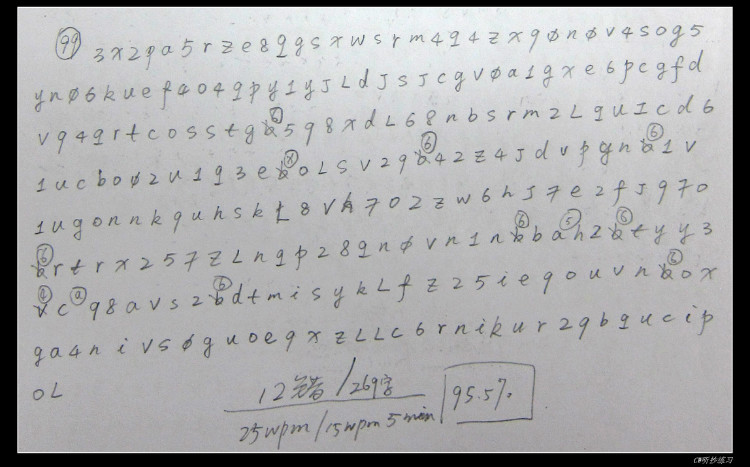 99
3x2pa5rze8qgsxwsrm4q4zxq0nøv4sog5
ynø6kuef404qpy1yJLdJsJcgvøa1gxe6pcgfd
vq4qrtcosstg 5q8xdL68nbsrm2Lqu1cd6
1ucboø2u1q3e oLsv2q 42z4Jdvpyn 1v
1ugonnkquhsktL8vh702zw6hJ7e2fJq70
rtrx257zLnqp28qnøvn1n b hz tyy3
c q8avs2 dtmisykLfz25ieqouvn ox
ga4nivsøguoeqxzLLc6rnikur2qbqucip
oL
12错/269字
25wpm/15wpm 5min
95.5%
CW听抄练习